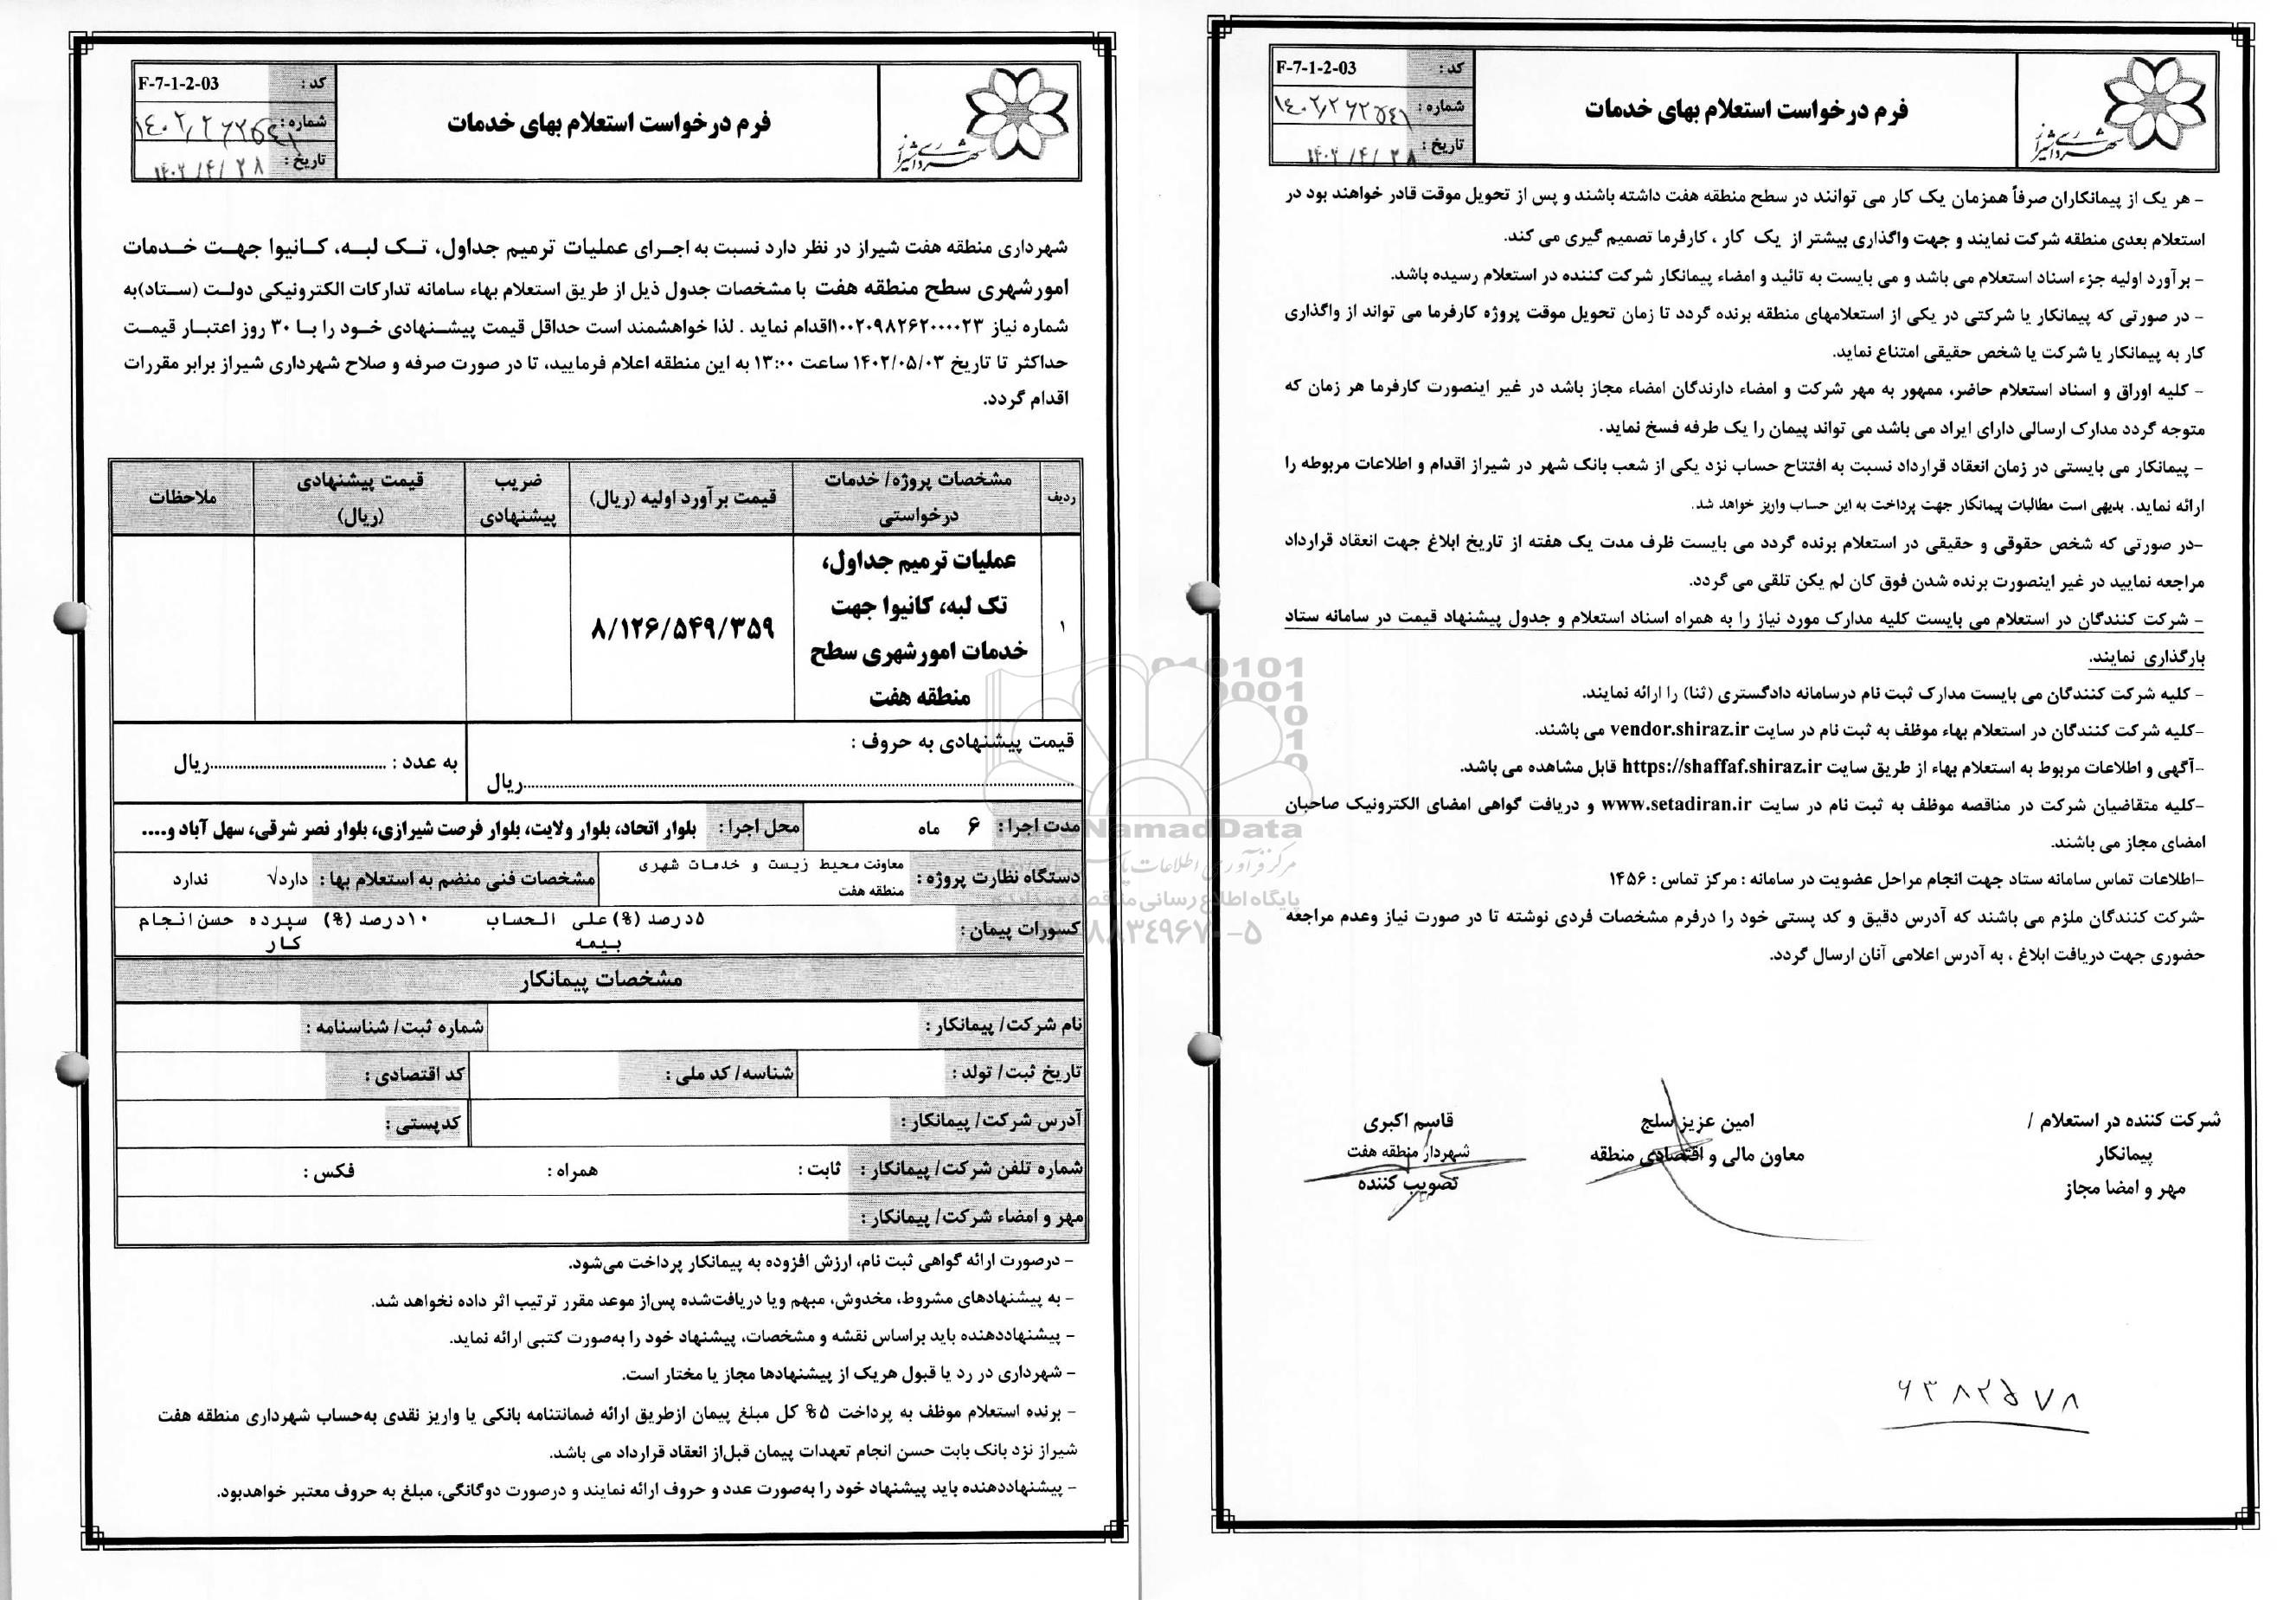 شهرداری شیراز
فرم درخواست استعلام بهای خدمات
کد : F-7-1-2-03
شماره :
تاریخ : ۱۴۰۲/۴/۲۸
شهرداری منطقه هفت شیراز در نظر دارد نسبت به اجرای عملیات ترمیم جداول، تک لبه، کانیوا جهت خدمات
امورشهری سطح منطقه هفت با مشخصات جدول ذیل از طریق استعلام بهاء سامانه تدارکات الکترونیکی دولت (ستاد)به
شماره نیاز ۱۱۰۰۲۰۹۸۲۶۲۰۰۰۰۲۳اقدام نماید . لذا خواهشمند است حداقل قیمت پیشنهادی خود را با ۳۰ روز اعتبار قیمت
حداکثر تا تاریخ ۱۴۰۲/۰۵/۰۳ ساعت ۱۳:۰۰ به این منطقه اعلام فرمایید، تا در صورت صرفه و صلاح شهرداری شیراز برابر مقررات
اقدام گردد.
ردیف
مشخصات پروژه/ خدمات درخواستی
قیمت برآورد اولیه (ریال)
ضریب پیشنهادی
قیمت پیشنهادی (ریال)
ملاحظات
۱
عملیات ترمیم جداول،
تک لبه، کانیوا جهت
خدمات امورشهری سطح
منطقه هفت
۸/۱۲۶/۵۴۹/۳۵۹
قیمت پیشنهادی به حروف :
..........ریال
به عدد : ..........ریال
مدت اجرا : ۶ ماه
محل اجرا : بلوار اتحاد، بلوار ولایت، بلوار فرصت شیرازی، بلوار نصر شرقی، سهل آباد و....
دستگاه نظارت پروژه : معاونت محیط زیست و خدمات شهری
منطقه هفت
مشخصات فنی منضم به استعلام بها : دارد√ ندارد
کسورات پیمان : ۵درصد (%)علی الحساب بیمه
۱۰درصد (%) سپرده حسن انجام کار
مشخصات پیمانکار
نام شرکت/ پیمانکار : شماره ثبت/ شناسنامه :
تاریخ ثبت/ تولد : شناسه/ کد ملی : کد اقتصادی :
آدرس شرکت/ پیمانکار : کدپستی :
شماره تلفن شرکت/ پیمانکار : ثابت : همراه : فکس :
مهر و امضاء شرکت/ پیمانکار :
- درصورت ارائه گواهی ثبت نام، ارزش افزوده به پیمانکار پرداخت می‌شود.
- به پیشنهادهای مشروط، مخدوش، مبهم ویا دریافت‌شده پس‌از موعد مقرر ترتیب اثر داده نخواهد شد.
- پیشنهاددهنده باید براساس نقشه و مشخصات، پیشنهاد خود را به‌صورت کتبی ارائه نماید.
- شهرداری در رد یا قبول هریک از پیشنهادها مجاز یا مختار است.
- برنده استعلام موظف به پرداخت ۵% کل مبلغ پیمان ازطریق ارائه ضمانتنامه بانکی یا واریز نقدی به‌حساب شهرداری منطقه هفت
شیراز نزد بانک بابت حسن انجام تعهدات پیمان قبل‌از انعقاد قرارداد می باشد.
- پیشنهاددهنده باید پیشنهاد خود را به‌صورت عدد و حروف ارائه نمایند و درصورت دوگانگی، مبلغ به حروف معتبر خواهدبود.
شهرداری شیراز
فرم درخواست استعلام بهای خدمات
کد : F-7-1-2-03
شماره :
تاریخ : ۱۴۰۲/۴/۲۸
- هر یک از پیمانکاران صرفاً همزمان یک کار می توانند در سطح منطقه هفت داشته باشند و پس از تحویل موقت قادر خواهند بود در
استعلام بعدی منطقه شرکت نمایند و جهت واگذاری بیشتر از یک کار ، کارفرما تصمیم گیری می کند.
- برآورد اولیه جزء اسناد استعلام می باشد و می بایست به تائید و امضاء پیمانکار شرکت کننده در استعلام رسیده باشد.
- در صورتی که پیمانکار یا شرکتی در یکی از استعلامهای منطقه برنده گردد تا زمان تحویل موقت پروژه کارفرما می تواند از واگذاری
کار به پیمانکار یا شرکت یا شخص حقیقی امتناع نماید.
- کلیه اوراق و اسناد استعلام حاضر، ممهور به مهر شرکت و امضاء دارندگان امضاء مجاز باشد در غیر اینصورت کارفرما هر زمان که
متوجه گردد مدارک ارسالی دارای ایراد می باشد می تواند پیمان را یک طرفه فسخ نماید.
- پیمانکار می بایستی در زمان انعقاد قرارداد نسبت به افتتاح حساب نزد یکی از شعب بانک شهر در شیراز اقدام و اطلاعات مربوطه را
ارائه نماید. بدیهی است مطالبات پیمانکار جهت پرداخت به این حساب واریز خواهد شد.
-در صورتی که شخص حقوقی و حقیقی در استعلام برنده گردد می بایست ظرف مدت یک هفته از تاریخ ابلاغ جهت انعقاد قرارداد
مراجعه نمایید در غیر اینصورت برنده شدن فوق کان لم یکن تلقی می گردد.
- شرکت کنندگان در استعلام می بایست کلیه مدارک مورد نیاز را به همراه اسناد استعلام و جدول پیشنهاد قیمت در سامانه ستاد
بارگذاری نمایند.
- کلیه شرکت کنندگان می بایست مدارک ثبت نام درسامانه دادگستری (ثنا) را ارائه نمایند.
-کلیه شرکت کنندگان در استعلام بهاء موظف به ثبت نام در سایت vendor.shiraz.ir می باشند.
-آگهی و اطلاعات مربوط به استعلام بهاء از طریق سایت https://shaffaf.shiraz.ir قابل مشاهده می باشد.
-کلیه متقاضیان شرکت در مناقصه موظف به ثبت نام در سایت www.setadiran.ir و دریافت گواهی امضای الکترونیک صاحبان
امضای مجاز می باشند.
-اطلاعات تماس سامانه ستاد جهت انجام مراحل عضویت در سامانه : مرکز تماس : ۱۴۵۶
-شرکت کنندگان ملزم می باشند که آدرس دقیق و کد پستی خود را درفرم مشخصات فردی نوشته تا در صورت نیاز وعدم مراجعه
حضوری جهت دریافت ابلاغ ، به آدرس اعلامی آنان ارسال گردد.
شرکت کننده در استعلام /
پیمانکار
مهر و امضا مجاز
امین عزیز سلج
معاون مالی و اقتصادی منطقه
قاسم اکبری
شهردار منطقه هفت
تصویب کننده
۶۳۸۲۵۷۸
NamadData